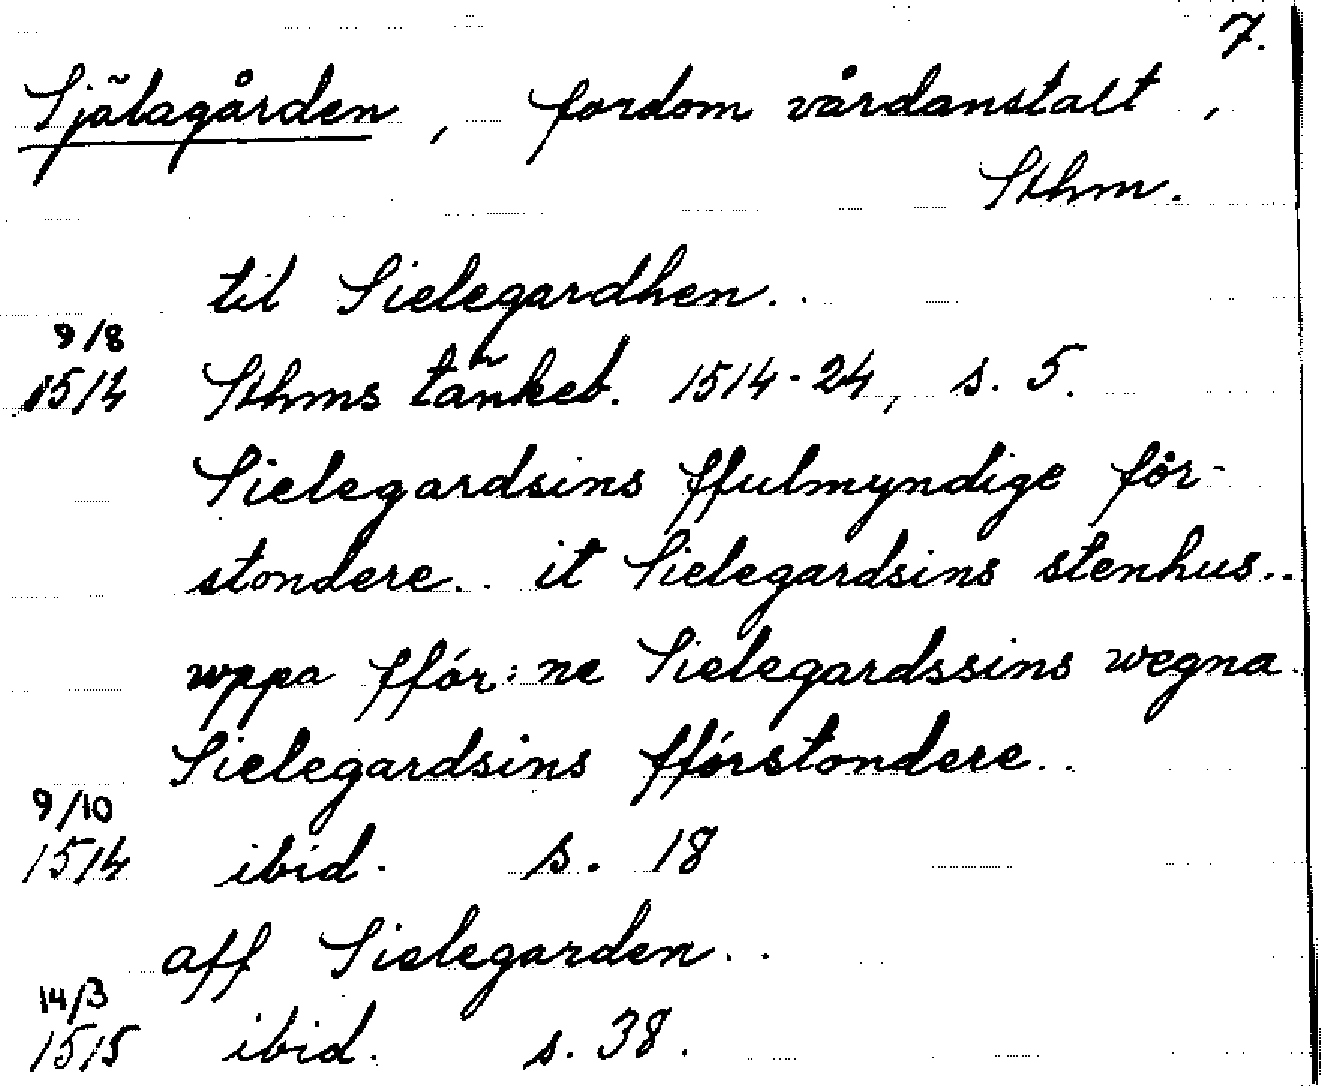 7.
Själagården, fordom vårdanstalt,
Sthm.
til Sielegardhen..
9/8
1514 Sthms tänkeb. 1514-24, s. 5.
Sielegardsins ffulmyndige för-
stondere.. it Sielegardsins stenhus..
wppa ffór:ne Sielegardssins wegna.
Sielegardsins ffórstondere..
9/10
1514 ibid. s. 18
aff Sielegarden...
14/3
1515 ibid. s. 38.